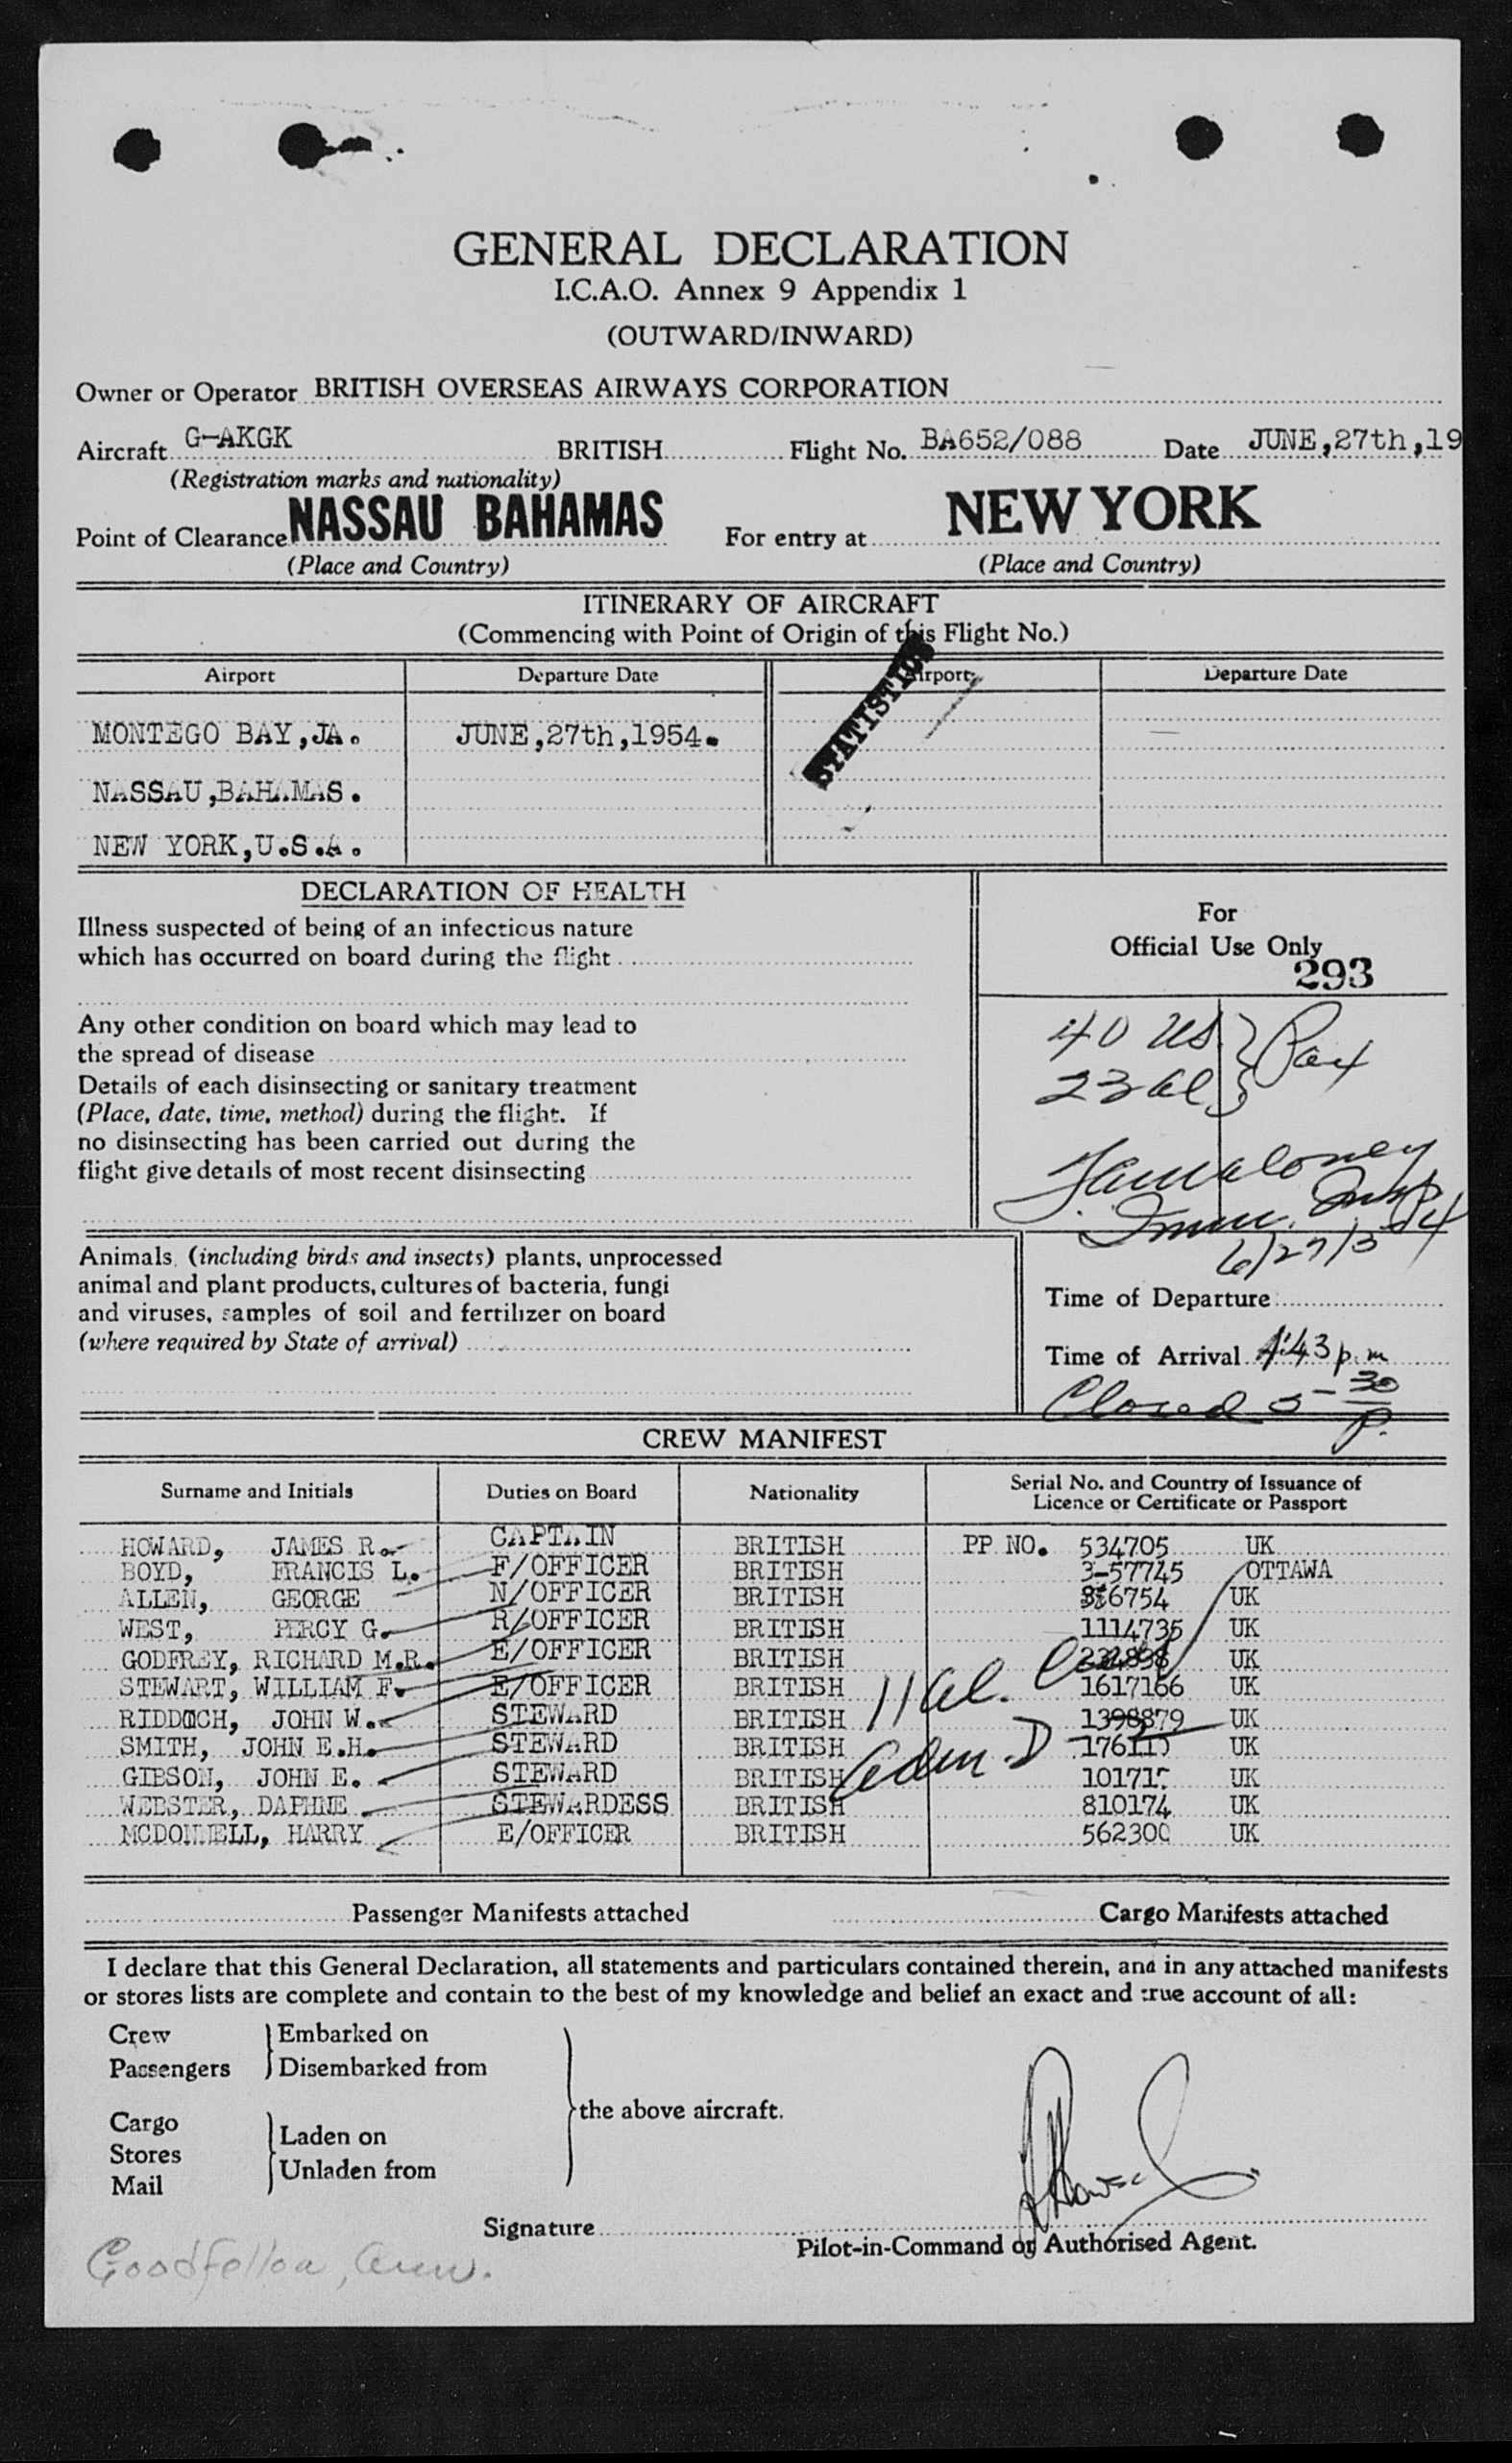 GENERAL DECLARATION
I.C.A.O. Annex 9 Appendix 1
(OUTWARD/INWARD)
Owner or Operator BRITISH OVERSEAS AIRWAYS CORPORATION
Aircraft G-AKGK BRITISH Flight No. BA652/088 Date JUNE,27th,19
(Registration marks and nationality)
Point of Clearance NASSAU BAHAMAS For entry at NEW YORK
(Place and Country) (Place and Country)
ITINERARY OF AIRCRAFT
(Commencing with Point of Origin of this Flight No.)
Airport Departure Date Airport Departure Date
STATISTICS
MONTEGO BAY,JA. JUNE,27th,1954.
NASSAU,BAHAMAS.
NEW YORK,U.S.A.
DECLARATION OF HEALTH
Illness suspected of being of an infectious nature
which has occurred on board during the flight
Any other condition on board which may lead to
the spread of disease
Details of each disinsecting or sanitary treatment
(Place, date, time, method) during the flight. If
no disinsecting has been carried out during the
flight give details of most recent disinsecting
For
Official Use Only
293
40 US } Pax
23 al }
Immi. Insp
6/27/54
Animals, (including birds and insects) plants, unprocessed
animal and plant products, cultures of bacteria, fungi
and viruses, samples of soil and fertilizer on board
(where required by State of arrival)
Time of Departure
Time of Arrival 4:43 p.m
Closed 5-30 p.
CREW MANIFEST
Surname and Initials Duties on Board Nationality Serial No. and Country of Issuance of
Licence or Certificate or Passport
HOWARD, JAMES R. CAPTAIN BRITISH PP NO. 534705 UK
BOYD, FRANCIS L. F/OFFICER BRITISH 3-57745 OTTAWA
ALLEN, GEORGE N/OFFICER BRITISH UK
WEST, PERCY G. R/OFFICER BRITISH 1114735 UK
GODFREY, RICHARD M.R. E/OFFICER BRITISH UK
STEWART, WILLIAM F. E/OFFICER BRITISH 1617166 UK
RIDDOCH, JOHN W. STEWARD BRITISH 1398879 UK
SMITH, JOHN E.H. STEWARD BRITISH UK
GIBSON, JOHN E. STEWARD BRITISH UK
WEBSTER, DAPHNE STEWARDESS BRITISH 810174 UK
MCDONNELL, HARRY E/OFFICER BRITISH 562300 UK
11 al.
adm. D
Passenger Manifests attached Cargo Manifests attached
I declare that this General Declaration, all statements and particulars contained therein, and in any attached manifests
or stores lists are complete and contain to the best of my knowledge and belief an exact and true account of all:
Crew Embarked on
Passengers Disembarked from
the above aircraft.
Cargo
Stores Laden on
Mail Unladen from
Signature
Pilot-in-Command or Authorised Agent.